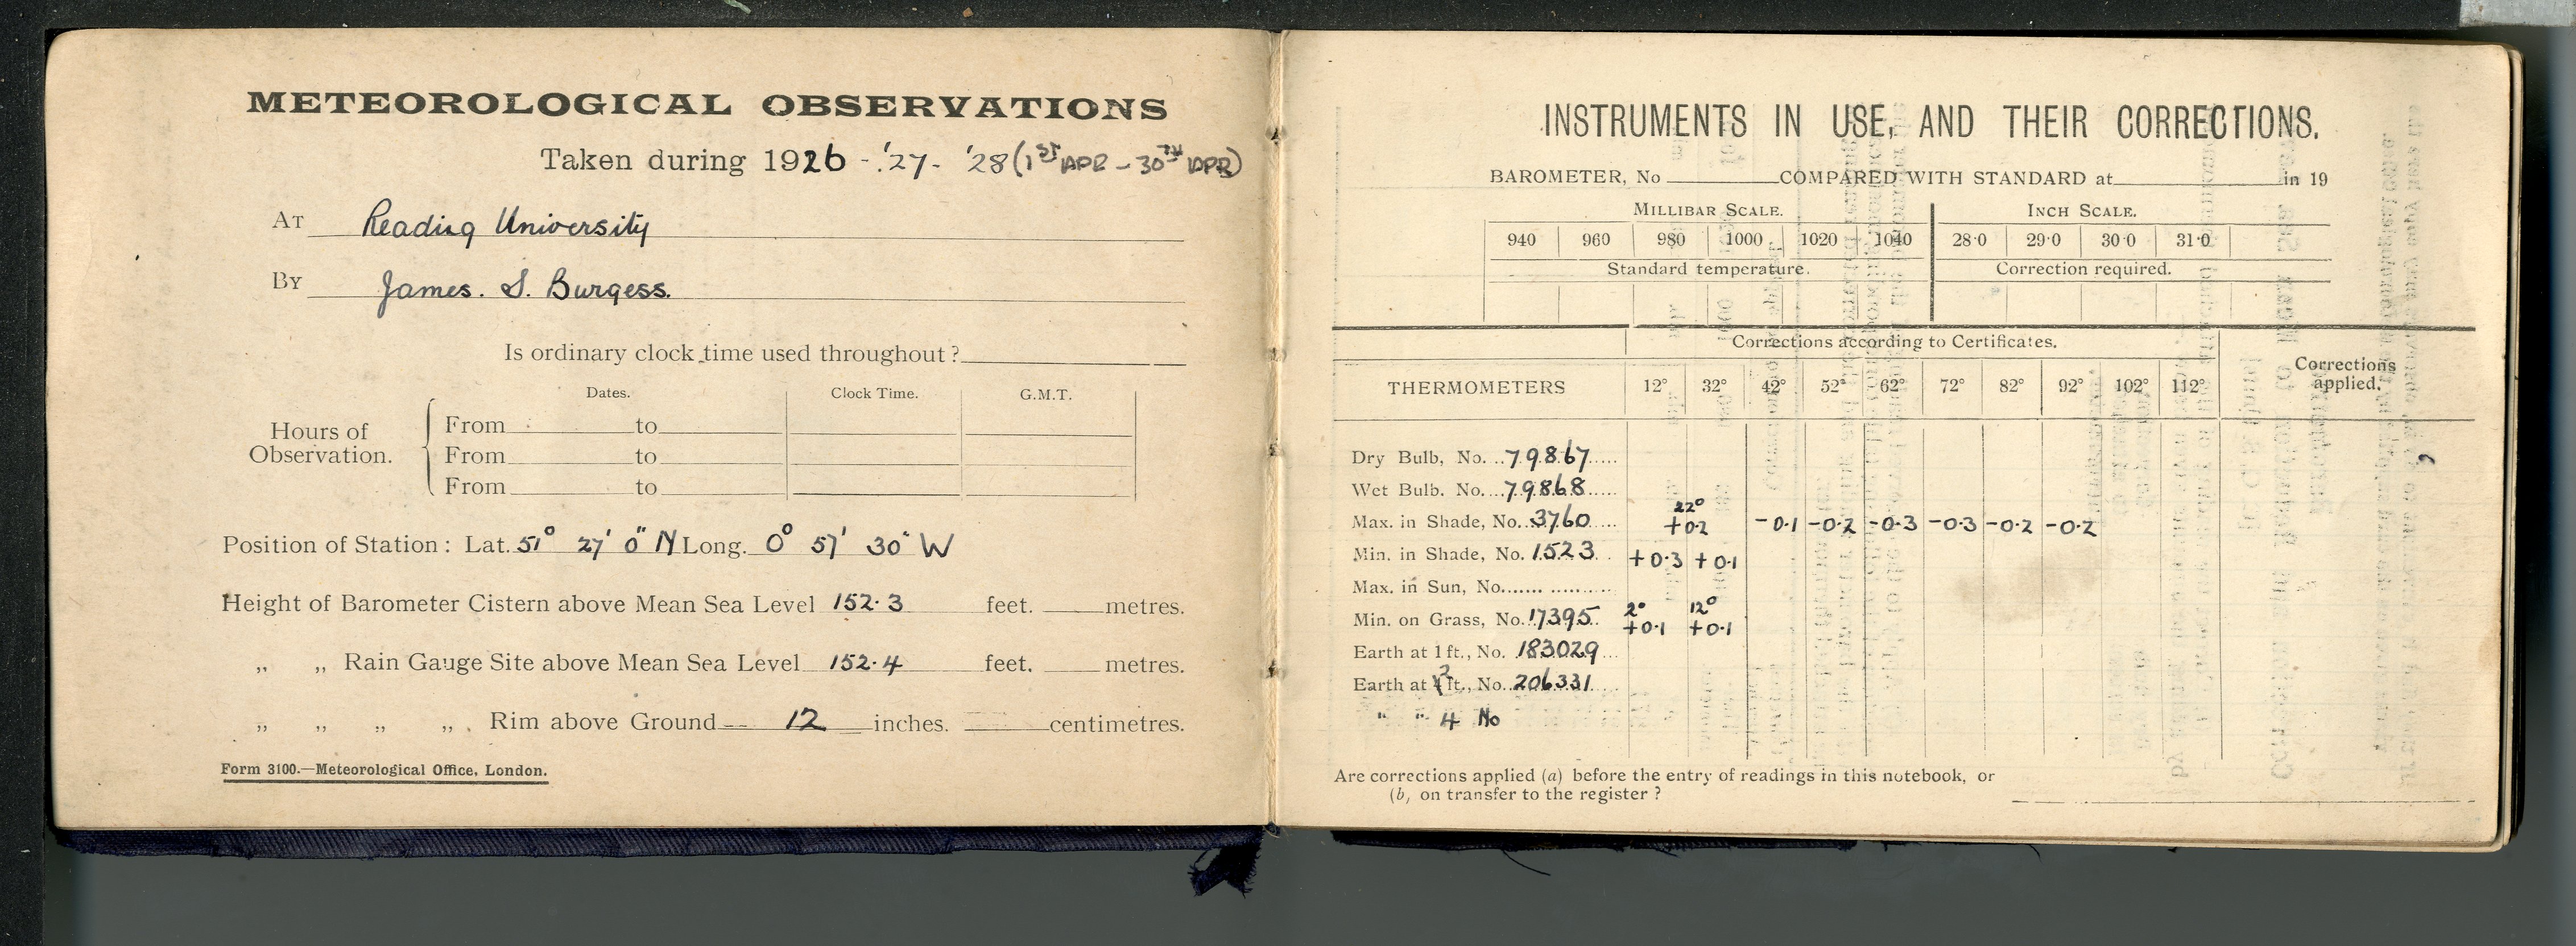 METEOROLOGICAL OBSERVATIONS
Taken during 1926 - '27 - '28 (1ST APR - 30TH APR)
AT Reading University
BY James. S. Burgess.
Is ordinary clock time used throughout?
Dates. Clock Time. G.M.T.
Hours of Observation.
From to
From to
From to
Position of Station: Lat. 51° 27' 0" N Long. 0° 57' 30" W
Height of Barometer Cistern above Mean Sea Level 152.3 feet. metres.
„ „ Rain Gauge Site above Mean Sea Level 152.4 feet. metres.
„ „ „ „ Rim above Ground 12 inches. centimetres.
Form 3100.—Meteorological Office, London.
INSTRUMENTS IN USE, AND THEIR CORRECTIONS.
BAROMETER, No COMPARED WITH STANDARD at in 19
MILLIBAR SCALE. INCH SCALE.
940 960 980 1000 1020 1040 28·0 29·0 30·0 31·0
Standard temperature. Correction required.
Corrections according to Certificates.
THERMOMETERS 12° 32° 42° 52° 62° 72° 82° 92° 102° 112° Corrections applied.
Dry Bulb, No. 79867
Wet Bulb. No. 79868
22°
Max. in Shade, No. 3760 +0.2 -0.1 -0.2 -0.3 -0.3 -0.2 -0.2
Min. in Shade, No. 1523 +0.3 +0.1
Max. in Sun, No.
2° 12°
Min. on Grass, No. 17395 +0.1 +0.1
Earth at 1 ft., No. 183029
Earth at 2 ft., No. 206331
" " 4 No
Are corrections applied (a) before the entry of readings in this notebook, or
(b, on transfer to the register ?